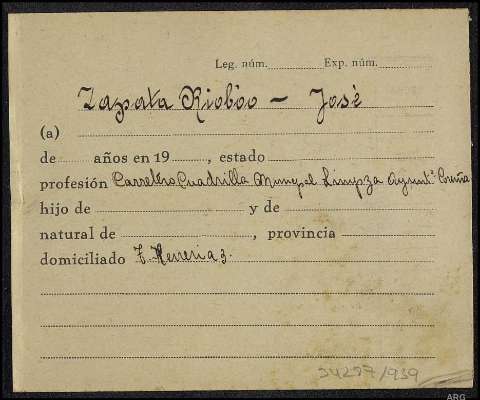 Leg. núm. Exp. núm.
Zapata Rioboo - José
(a)
de años en 19 , estado
profesión Carretero Cuadrilla Municpal Limpza Ayuntº Coruña
hijo de y de
natural de , provincia
domiciliado T. Herreria 3.
34297/939
ARG